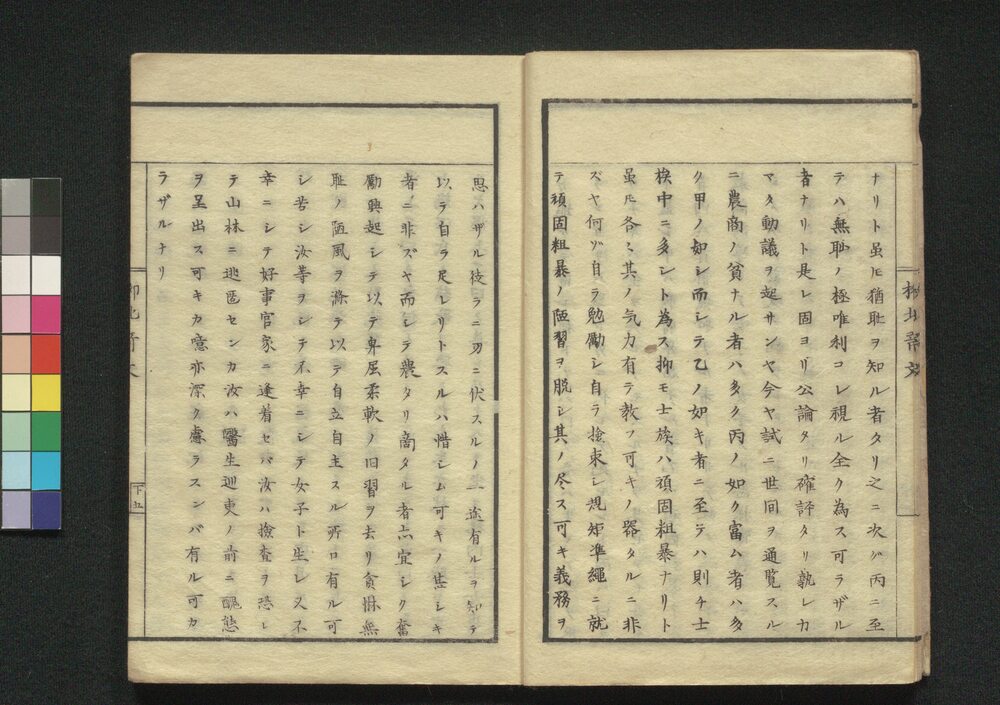 ナリト虽𪜈猶耻ヲ知ル者タリ之ニ次グ丙ニ至
テハ無耻ノ極唯利コレ視ル全ク為ス可ラザル
者ナリト是レ固ヨリ公論タリ確評タリ孰レカ
マタ動議ヲ起サンヤ今ヤ試ニ世间ヲ通覧スル
ニ農商ノ貧ナル者ハ多ク丙ノ如ク富ム者ハ多
ク甲ノ如シ而シテ乙ノ如キ者ニ至テハ則チ士
族中ニ多シト為ス抑モ士族ハ頑固粗暴ナリト
虽𪜈各〻其ノ気力有テ教フ可キノ器タルニ非
ズヤ何ゾ自ラ勉励シ自ラ撿束シ規矩準繩ニ就
テ頑固粗暴ノ陋習ヲ脱シ其ノ尽ス可キ義務ヲ
思ハザル徒ラニ刃ニ伏スルノ一途有ルヲ知テ
以テ自ラ足レリトスルハ惜シム可キノ甚シキ
者ニ非ズヤ而シテ農タリ商タル者亦宜シク奮
励興起シテ以テ卑屈柔軟ノ旧習ヲ去リ貪惏無
耻ノ陋風ヲ滌テ以テ自立自主スル所ロ有ル可
シ若シ汝等ヲシテ不幸ニシテ女子ト生レ又不
幸ニシテ好事官家ニ逢着セバ汝ハ撿査ヲ恐レ
テ山林ニ逃匿センカ汝ハ醫生巡吏ノ前ニ醜態
ヲ呈出ス可キカ噫亦深ク慮ラスンバ有ル可カ
ラザルナリ
下五